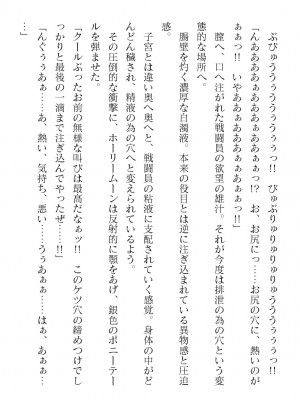 ぶびゅううぅうううぅぅっ!!　びゅぶりゅりゅりゅりゅうううぅぅぅっ!!
「んあああぁぁぁあぁぁっっ!?　お、お尻にっ……お尻の穴に、熱いのが
ぁぁっ!!　いやああぁぁぁああぁぁっ!!」
　膣へ、口へ注がれた戦闘員の欲望の雄汁。それが今度は排泄の為の穴という変
態的な場所へ。
　腸壁を灼く濃厚な白濁液。本来の役目とは逆に注ぎ込まれている異物感と圧迫
感。
　子宮とは違い奥へ奥へと、戦闘員の粘液に支配されていく感覚。身体の中がど
んどん穢され、精液の為の穴へと変えられているようだ。
　その圧倒的な衝撃に、ホーリームーンは反射的に顎をあげ、銀色のポニーテー
ルを弾ませた。
「クールぶったお前の無様な叫びは最高だなぁッ!!　このケツ穴の締めつけでし
っかりと最後の一滴まで注ぎ込んでやったぜ……!!」
「んぐぅぅあぁ……あ、熱い、気持ち、悪い……うぁぁぁ……はぁ、あぁぁ…
…」